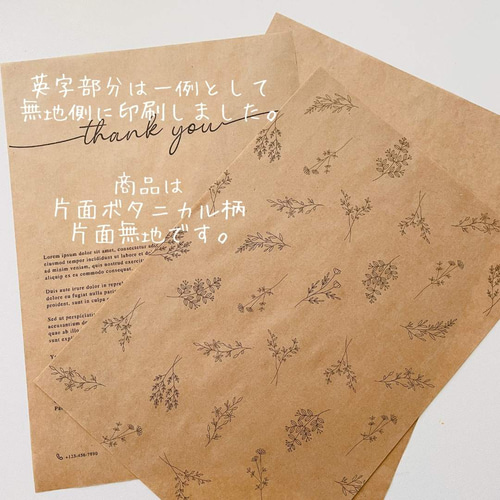 英字部分は一例として
無地側に印刷しました。
thank you
商品は
片面ボタニカル柄
片面無地です。
Lorem ipsum dolor sit amet, consectetur
elamcing tempor incididunt ut labore et dolore
ad minim veniam, quis nostrud exercit
ea commodo consequat.
Duis aute irure dolor in repre
Sed ut perspiciatis
accusantium d
quae ab illo
+123-456-7890